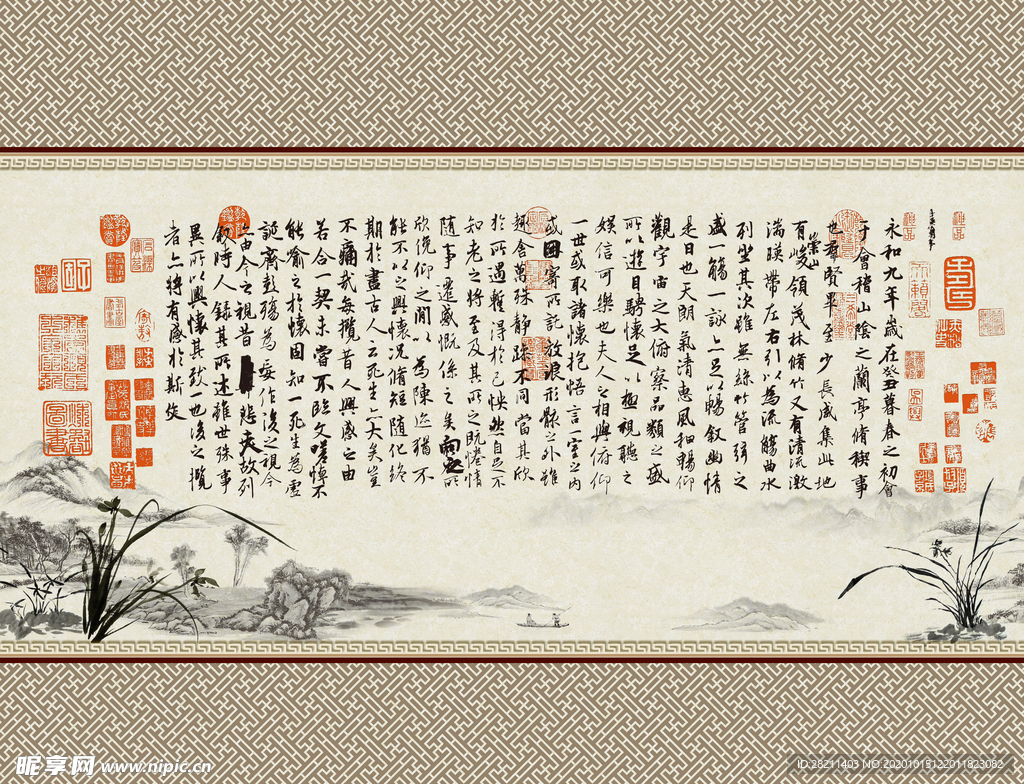 永和九年歲在癸丑暮春之初會
于會稽山陰之蘭亭脩稧事
也羣賢畢至少長咸集此地
有崇山峻領茂林脩竹又有清流激
湍暎帶左右引以為流觴曲水
列坐其次雖無絲竹管弦之
盛一觴一詠亦足以暢叙幽情
是日也天朗氣清惠風和暢仰
觀宇宙之大俯察品類之盛
所以遊目騁懷足以極視聽之
娛信可樂也夫人之相與俯仰
一世或取諸懷抱悟言一室之內
或因寄所託放浪形骸之外雖
趣舍萬殊靜躁不同當其欣
於所遇蹔得於己怏然自足不
知老之將至及其所之既惓情
隨事遷感慨係之矣向之所
欣俛仰之閒以為陳迹猶不
能不以之興懷況脩短隨化終
期於盡古人云死生亦大矣豈
不痛哉每攬昔人興感之由
若合一契未嘗不臨文嗟悼不
能喻之於懷固知一死生為虛
誕齊彭殤為妄作後之視今
亦由今之視昔悲夫故列
叙時人錄其所述雖世殊事
異所以興懷其致一也後之攬
者亦將有感於斯文
昵享网 www.nipic.cn
ID:28211403 NO:20201015122011823082